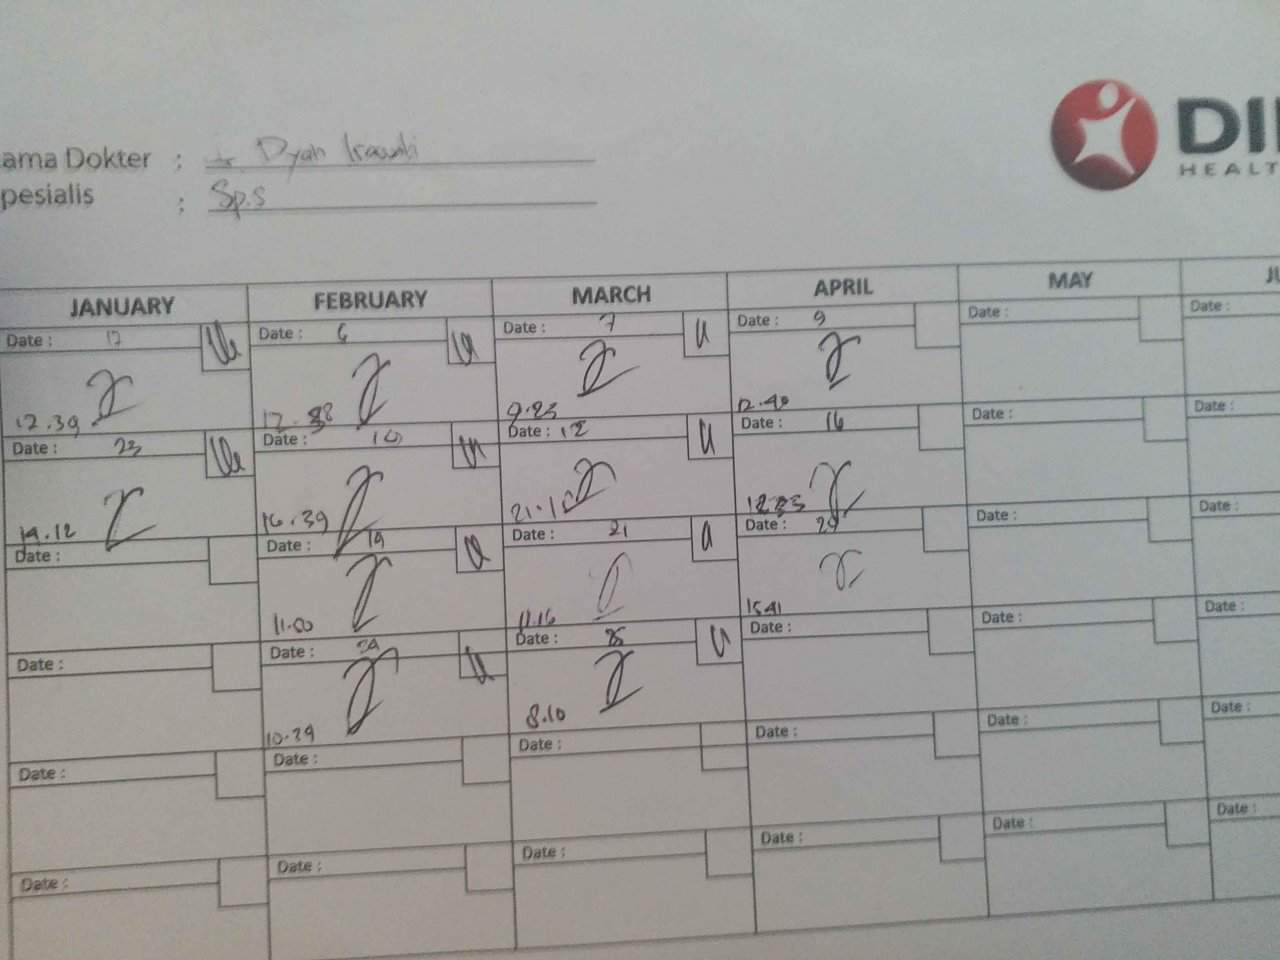 DI
HEALT
ama Dokter : dr. Dyah Irawati
pesialis : Sp.S
JANUARY FEBRUARY MARCH APRIL MAY JU
Date : 17 Date : 6 Date : 7 Date : 9 Date : Date :
12.39 12.38 9.23 12.40
Date : 23 Date : 10 Date : 12 Date : 16 Date : Date :
19.12 16.39 21.15 12.35
Date : Date : 19 Date : 21 Date : 29 Date : Date :
11.50 11.16 15.41
Date : Date : Date : 25 Date : Date : Date :
10.39 8.10
Date : Date : Date : Date : Date : Date :
Date : Date : Date : Date : Date : Date :